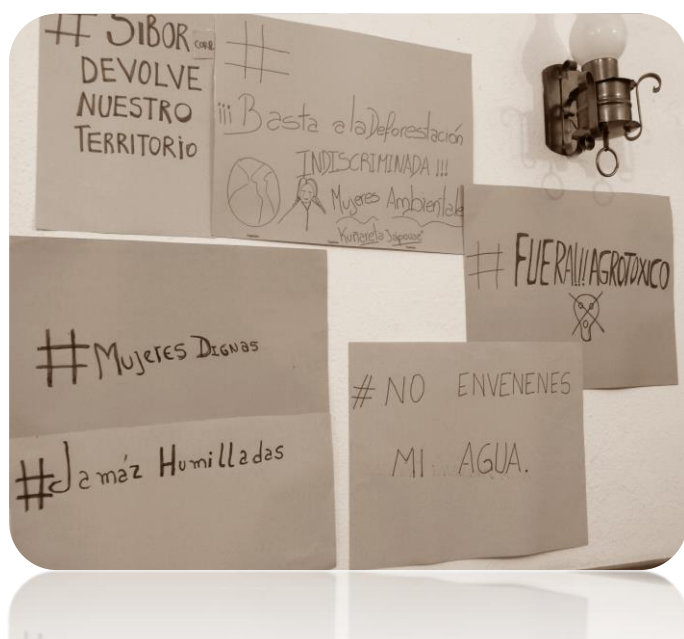 # SIBOR CORR.
DEVOLVE
NUESTRO
TERRITORIO
#
¡¡¡ Basta a la Deforestación
INDISCRIMINADA !!!
Mujeres Ambientale
# FUERA!!! AGROTOXICO
# Mujeres Dignas
# Jamáz Humilladas
# NO ENVENENES
MI AGUA.